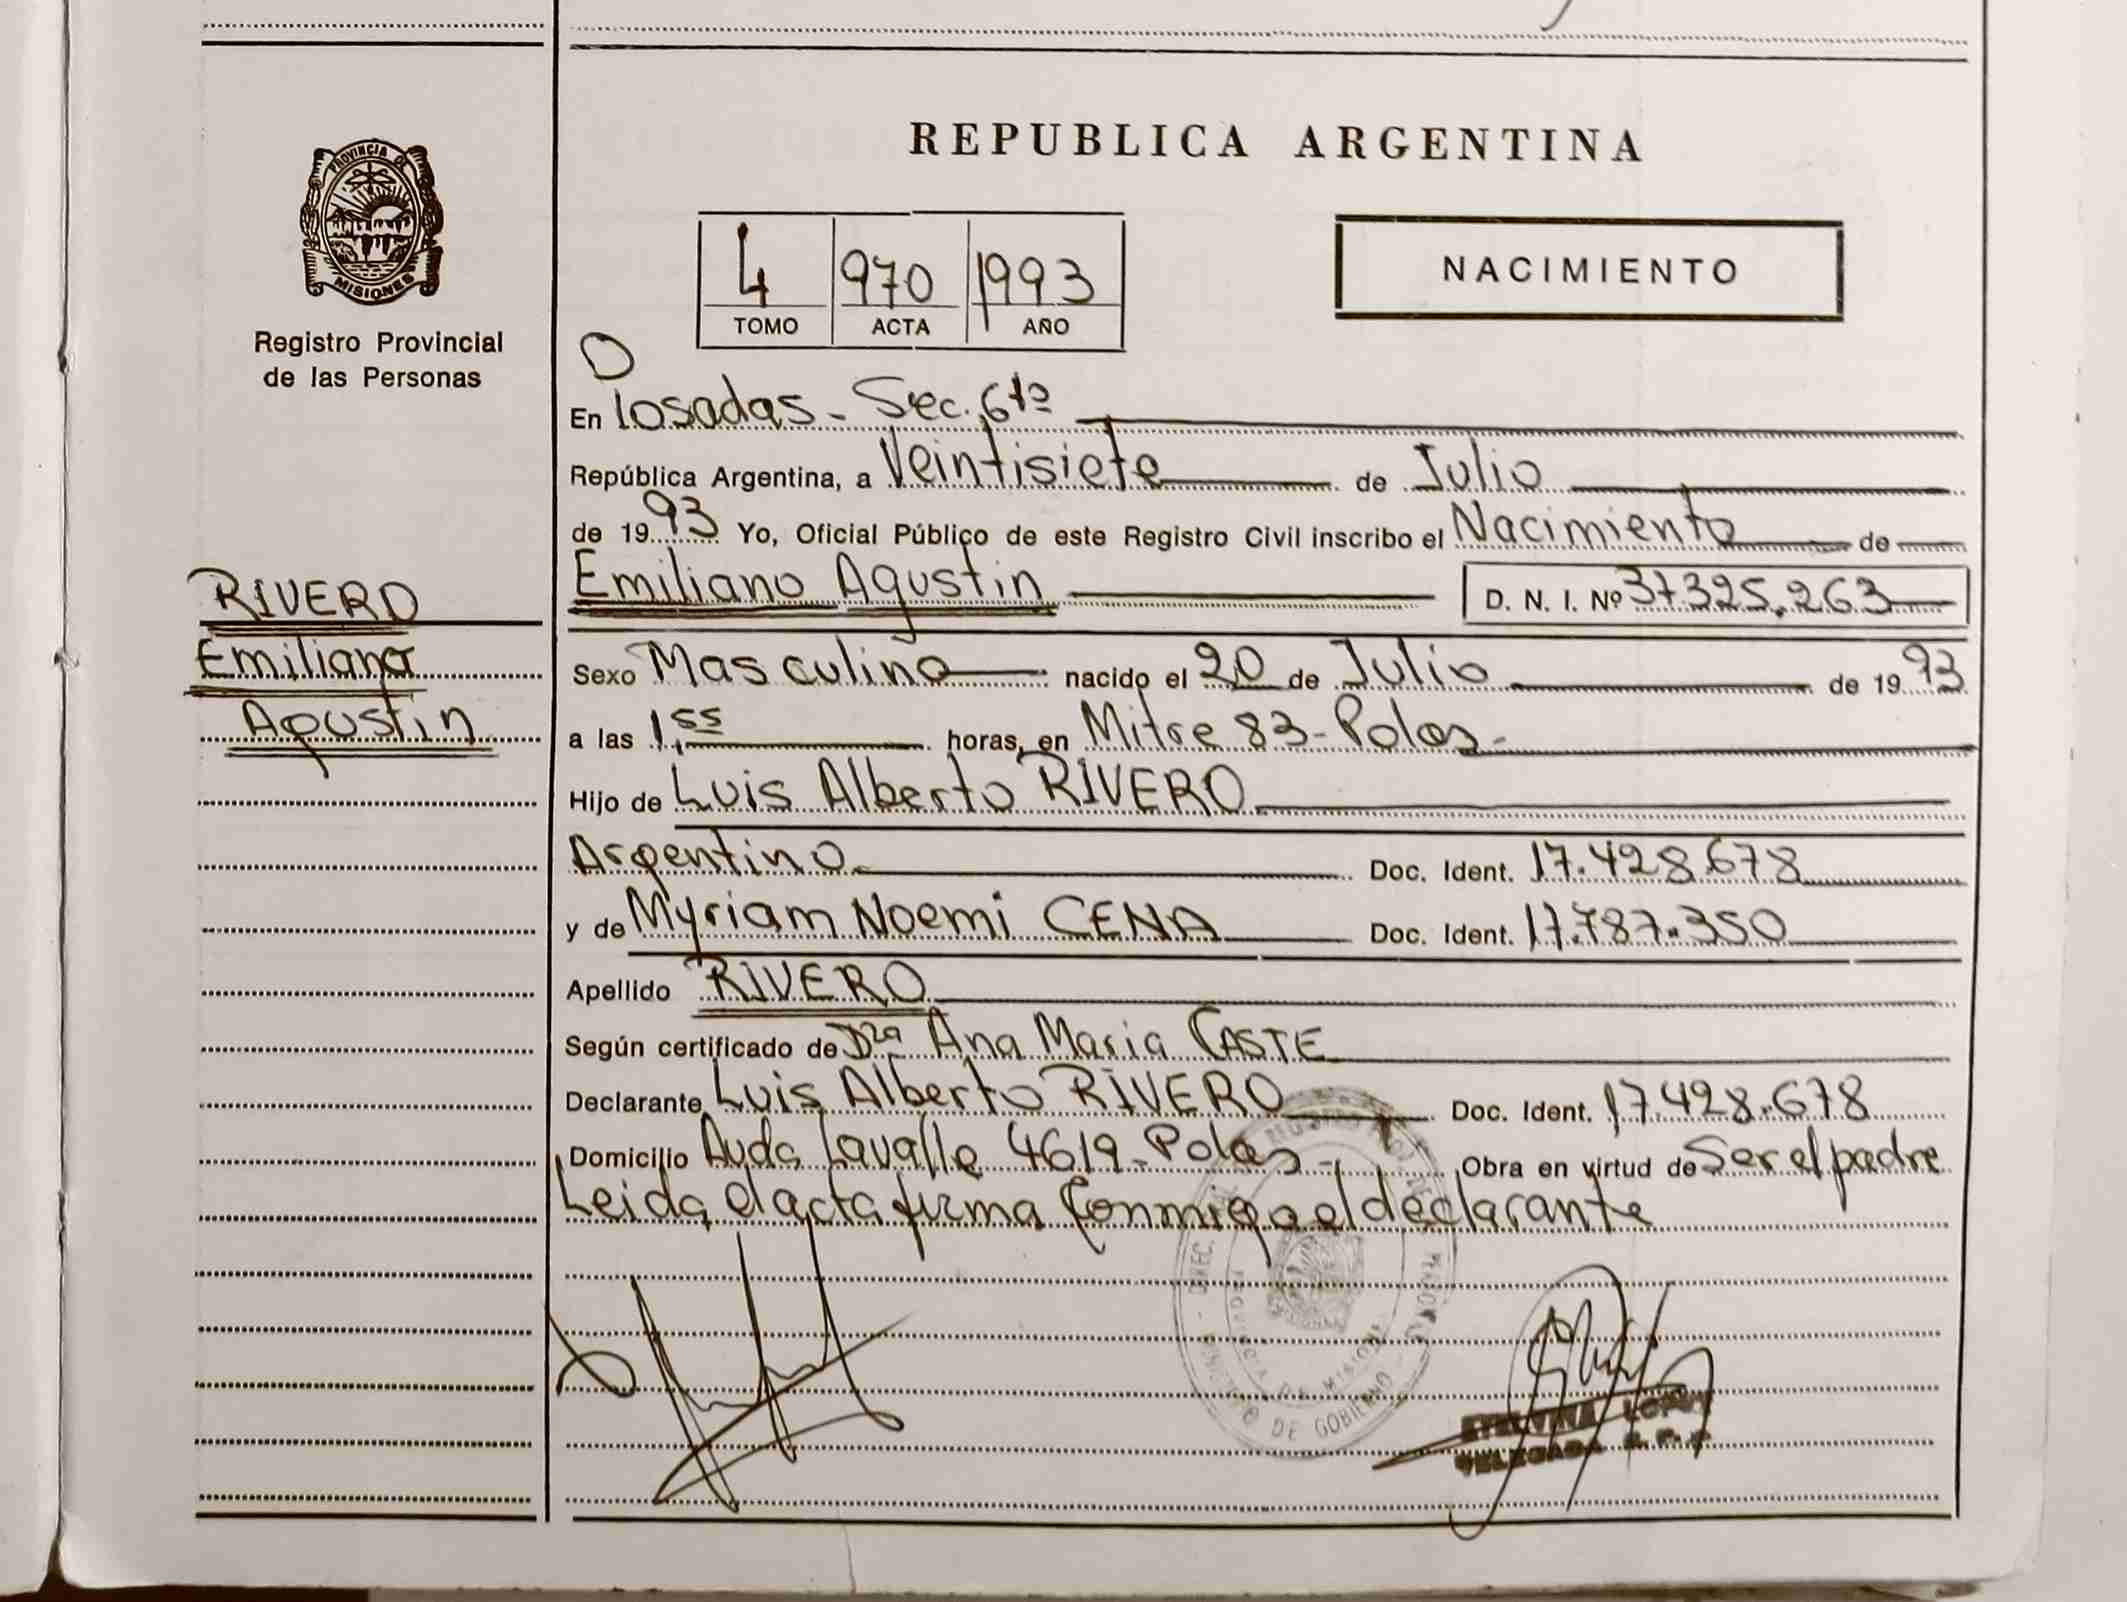 REPUBLICA ARGENTINA
PROVINCIA DE
MISIONES
Registro Provincial
de las Personas
4 970 1993
TOMO ACTA AÑO
NACIMIENTO
En Posadas - Sec. 6ta
República Argentina, a Veintisiete de Julio
de 1993 Yo, Oficial Público de este Registro Civil inscribo el Nacimiento de
RIVERO
Emiliano
Agustin
Emiliano Agustin D. N. I. Nº 37.325.263
Sexo Masculino nacido el 20 de Julio de 1993
a las 1,55 horas, en Mitre 83 - Pdas -
Hijo de Luis Alberto RIVERO
Argentino Doc. Ident. 17.428.678
y de Myriam Noemi CENA Doc. Ident. 17.787.350
Apellido RIVERO
Según certificado de Dra Ana Maria CASTE
Declarante Luis Alberto RIVERO Doc. Ident. 17.428.678
Domicilio Avda Lavalle 4619 - Pdas - Obra en virtud de Ser el padre
Leida el acta firma Conmigo el declarante
PROVINCIA DE MISIONES
MINISTERIO DE GOBIERNO